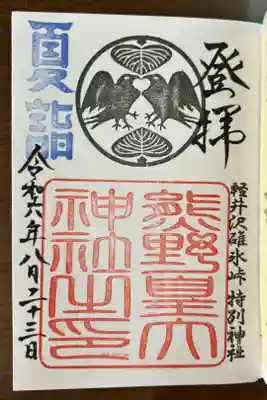 登拝
軽井沢碓氷峠 特別神社
熊野皇大
神社之印
夏詣
令和六年八月二十三日